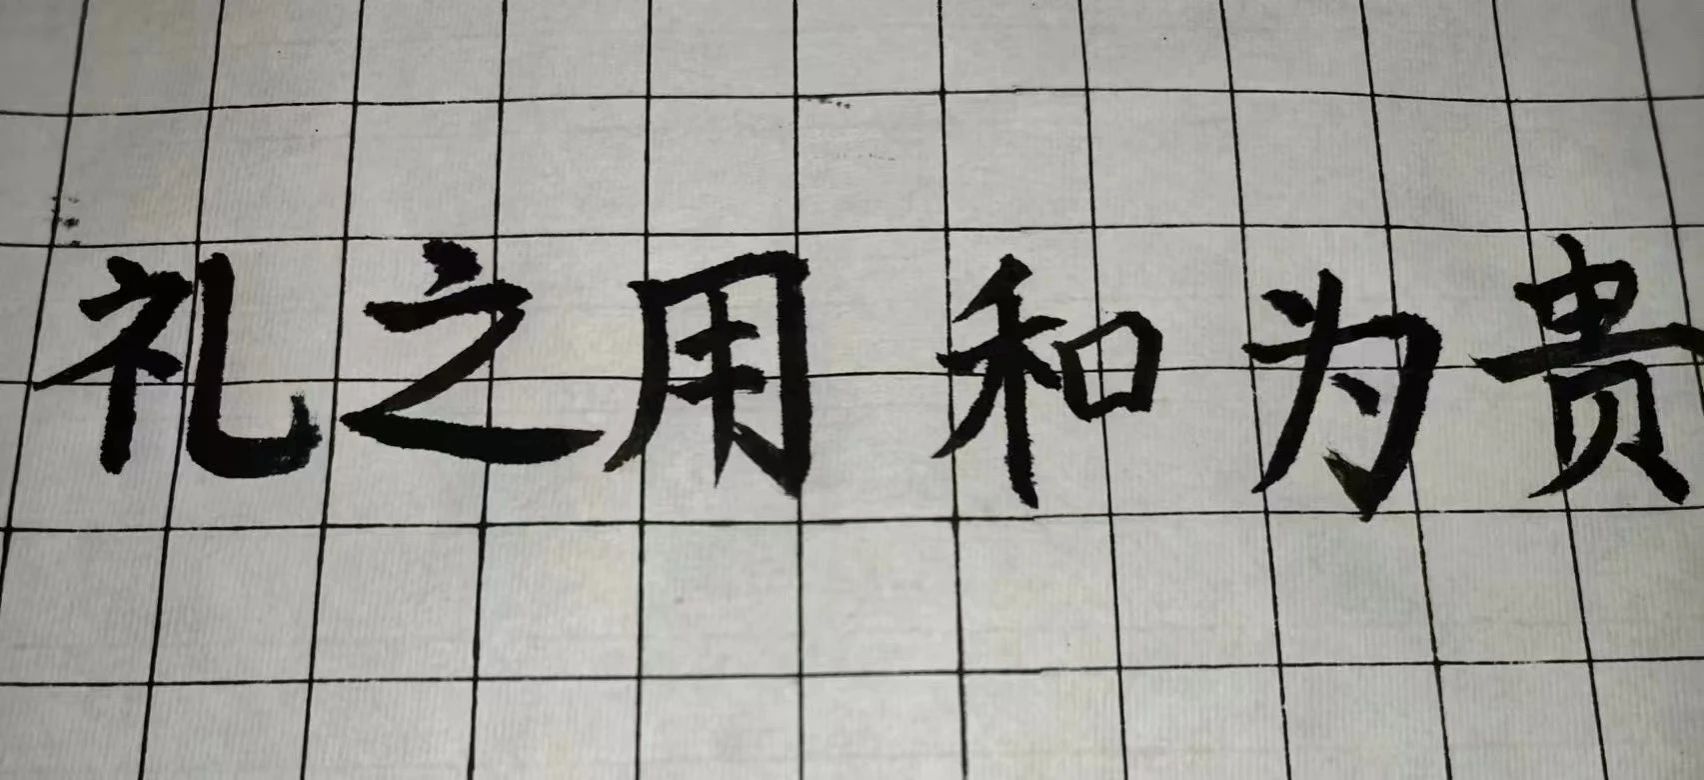 礼之用和为贵